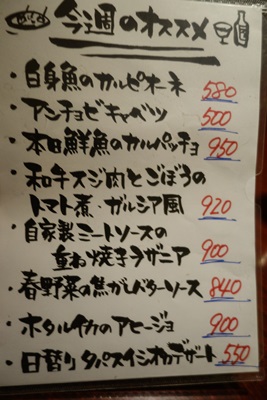 今週のオススメ
・白身魚のカルピオーネ 580
・アンチョビキャベツ 500
・本日鮮魚のカルパッチョ 950
・和牛スジ肉とごぼうの
トマト煮・ガルシア風 920
・自家製ミートソースの
重ね焼きラザニア 900
・春野菜の焦がしバターソース 840
・ホタルイカのアヒージョ 900
・日替り タパス デザート 550